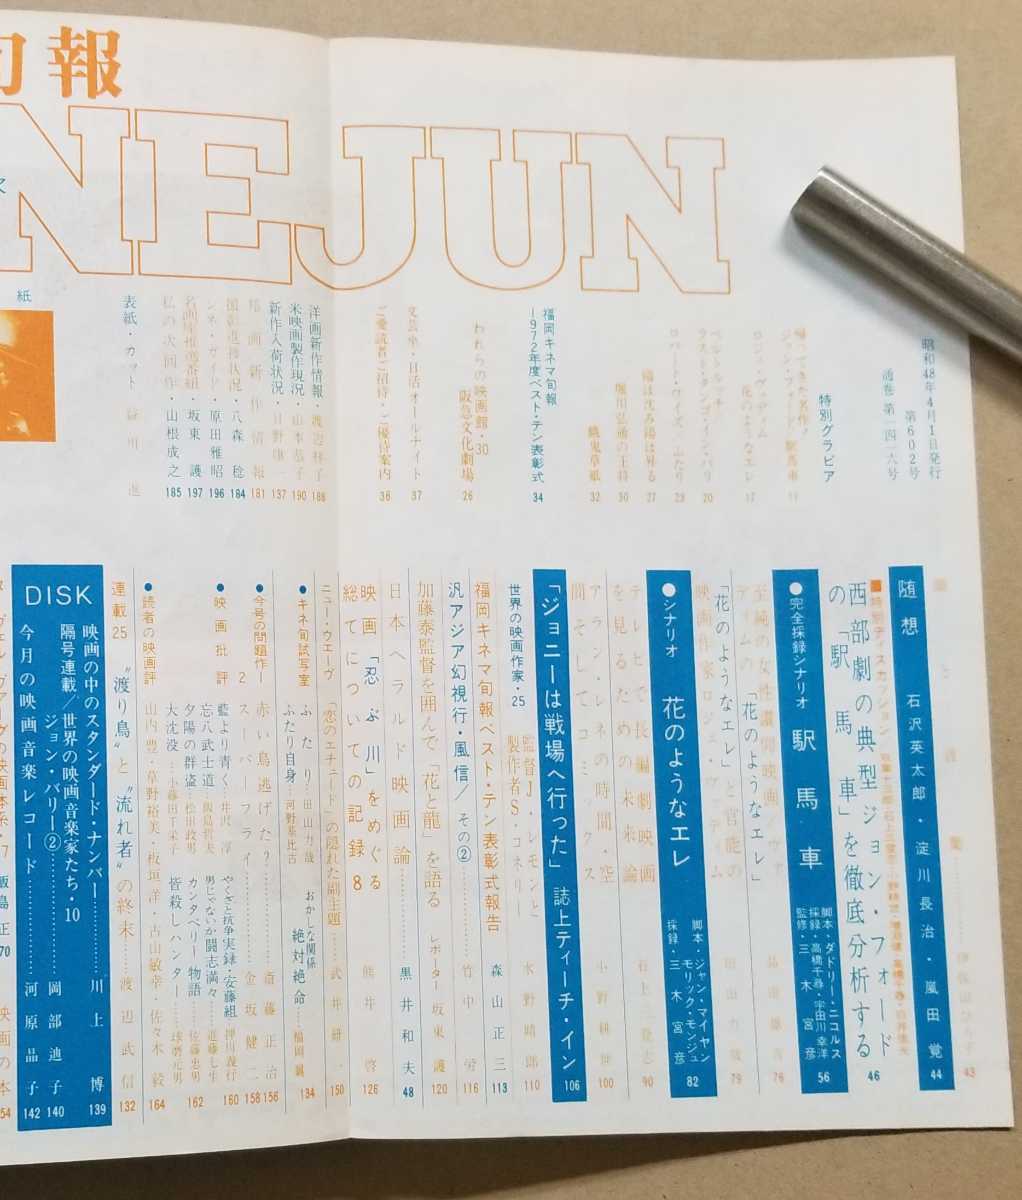 旬報
NEJUN
昭和48年4月1日発行
第602号
通巻 第一四一六号
特別グラビア
帰ってきた名作!
ジョン・フォード/駅馬車 11
ロジェ・ヴァディム
花のようなエレ 17
ベルトルッチ
ラスト・タンゴ・イン・パリ 20
ロバート・ワイズ 23
陽は沈み陽は昇る 27
堀川弘通の王将 30
餓鬼草紙 32
福岡キネマ旬報
1972年度ベスト・テン表彰式 34
われらの映画館・30
阪急文化劇場 26
文芸坐・日活オールナイト 37
ご愛読者ご招待・ご優待案内 36
洋画新作情報・渡辺祥子 188
米映画製作現況・山本恭子 190
新作入荷状況・日野康一 137
邦画新作情報 181
撮影進捗状況・八森稔 184
シネ・ガイド・原田雅昭 196
名画座推薦番組・坂東護 197
私の次回作・山根成之 185
表紙・カット・益川進
紙
43
随想 石沢英太郎・淀川長治・嵐田覚 44
■特別ディスカッション
西部劇の典型ジョン・フォード
の「駅馬車」を徹底分析する 46
●完全採録シナリオ 駅馬車 脚本・ダドリー・ニコルス
採録・高橋千尋・宇田川幸洋
監修・三木宮彦 56
至純の女性讃問映画・ヴァ
ディムの「花のようなエレ」 76
「花のようなエレ」と官能の
映画作家ロジェ・ヴァディム 田山力哉 79
●シナリオ 花のようなエレ 脚本・ジャン・マイヤン
モリック・モンジュ
採録・三木宮彦 82
テレビで長編劇映画
を見るための未来論 石上三登志 90
アラン・レネの時間・空
間そしてコミックス 小野耕世 100
「ジョニーは戦場へ行った」誌上ティーチ・イン 106
世界の映画作家・25 監督J・レモンと
製作者S・コネリー 水野晴郎 110
福岡キネマ旬報ベスト・テン表彰式報告 森山正三 113
汎アジア幻視行・風信/その② 竹中労 116
加藤泰監督を囲んで「花と龍」を語る レポーター 坂東護 120
日本ヘラルド映画論 黒井和夫 48
映画「忍ぶ川」をめぐる
総てについての記録8 熊井啓 126
ニュー・ウエーヴ 「恋のエチュード」の隠れた副主題 武井研一 150
●キネ旬試写室 ふたり・田山力哉 おかしな関係
絶対絶命・福岡翼
ふたり自身・河野基比古 134
●今号の問題作 赤い鳥逃げた?・斎藤正治 156
2 スーパーフライ・金坂健二 158
●映画批評 藍より青く・井沢淳 やくざと抗争実録・安藤組 押川義行 160
忘八武士道・飯島哲夫 男じゃないか闘志満々・進藤七生
夕陽の群盗・松田政男 カンタベリー物語・佐藤忠男 162
大沈没・小藤田千栄子 皆殺しハンター・球磨元男
●読者の映画評 山内豊・草野裕美・板垣洋・古山敏幸・佐々木毅 164
連載25 “渡り鳥”と“流れ者”の終末 渡辺武信 132
DISK 映画の中のスタンダード・ナンバー 川上博 139
隔号連載/世界の映画音楽家たち・10
ジョン・バリー② 岡部迪子 140
今月の映画音楽レコード 河原晶子 142
飯島正 70
映画の本 54